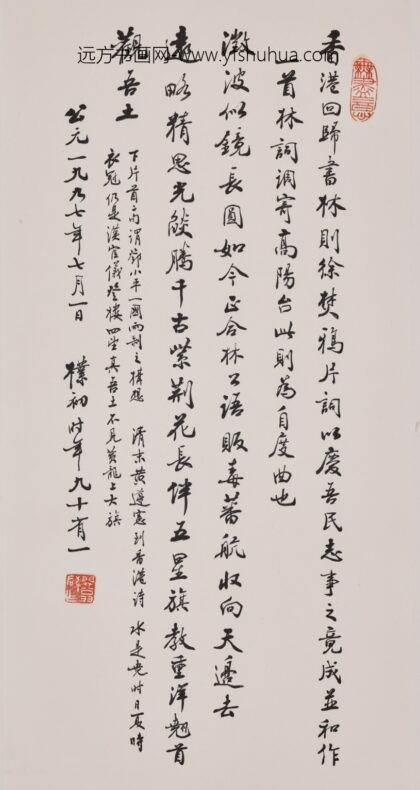 远方书画网-www.yfshuhua.com
香港回歸書林則徐焚鴉片詞以慶吾民志事之竟成並和作
一首林詞調寄高陽台此則為自度曲也
澂波似鏡長圓如今正合林公語販毒蕃航収向天邊去
遠略精思光燄騰千古紫荊花長伴五星旗教重洋翹首
觀吾土
下片首句謂鄧小平一國兩制之構想 清末黃遵憲到香港詩 水是堯時日夏時
衣冠仍是漢官儀登樓四望真吾土不見黃龍上大旗
公元一九九七年七月一日 樸初時年九十有一